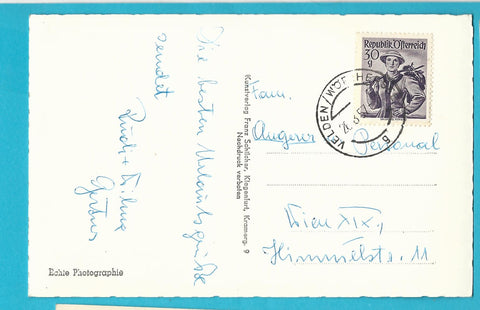 Die besten Urlaubsgrüße
sendet
Rudi +
Echte Photographie
Kunstverlag Franz Schilcher, Klagenfurt, Kramerg. 9
Nachdruck verboten
Republik Österreich
30
g
VELDEN/WÖRTHE
Fam.
Angerer Personal
Wien XIX.,
Himmelstr. 11